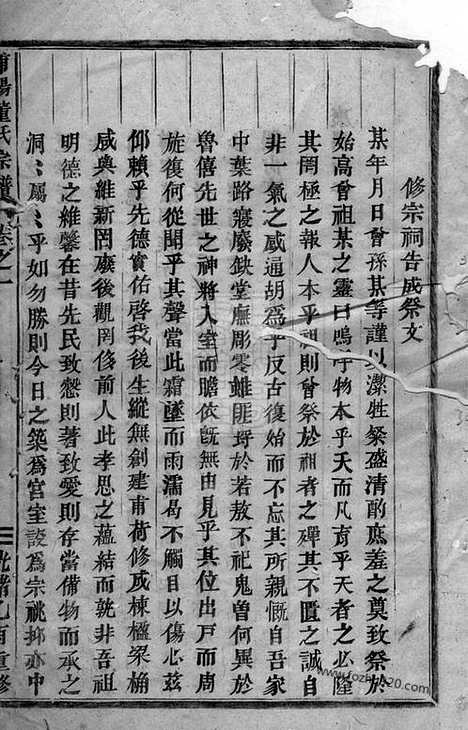 修宗祠告成祭文
某年月日曾孫某等謹以潔牲粢盛清酌庶羞之奠致祭於
始高曾祖某之靈曰嗚呼物本乎天而凡育乎天者之必隆
其罔極之報人本乎祖則曾祭於祖者之殫其不匱之誠自
非一氣之感通胡爲乎反古復始而不忘其所親慨自吾家
中葉路寢廢缺堂廡彫零雖匪野於若敖不祀鬼曾何異於
魯僖先世之神將入室而瞻依旣無由見乎其位出戸而周
旋復何從聞乎其聲當此霜墜而雨濡曷不觸目以傷心茲
仰賴乎先德實佑啓我後生縱無創建甫荷修成棟楹梁桷
咸與維新罔廢後觀罔侈前人此孝思之蘊結而孰非吾祖
明德之維馨在昔先民致慤則著致愛則存當備物而承之
洞〻屬〻乎如勿勝則今日之築爲宮室設爲宗祧抑亦中
董氏宗譜 卷之一
光緒乙酉重修
www.fozhu920.com